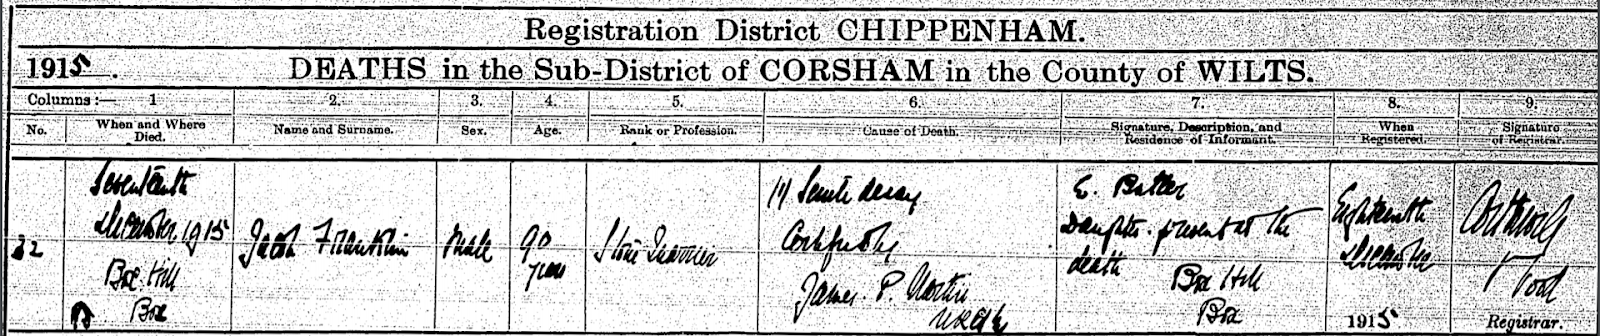 Registration District CHIPPENHAM.
1915. DEATHS in the Sub-District of CORSHAM in the County of WILTS.
Columns :— 1 2. 3. 4. 5. 6. 7. 8. 9.
No. When and Where Died. Name and Surname. Sex. Age. Rank or Profession. Cause of Death. Signature, Description, and Residence of Informant. When Registered. Signature of Registrar.
Seventeenth
December 1915
Box Hill
Box
Jacob Franklin
Male
90
years
Stone Quarrier
(1) Senile decay
Certified by
James P. Martin
E. Butler
Daughter present at the
death
Box Hill
Box
Eighteenth
December
1915
Registrar.